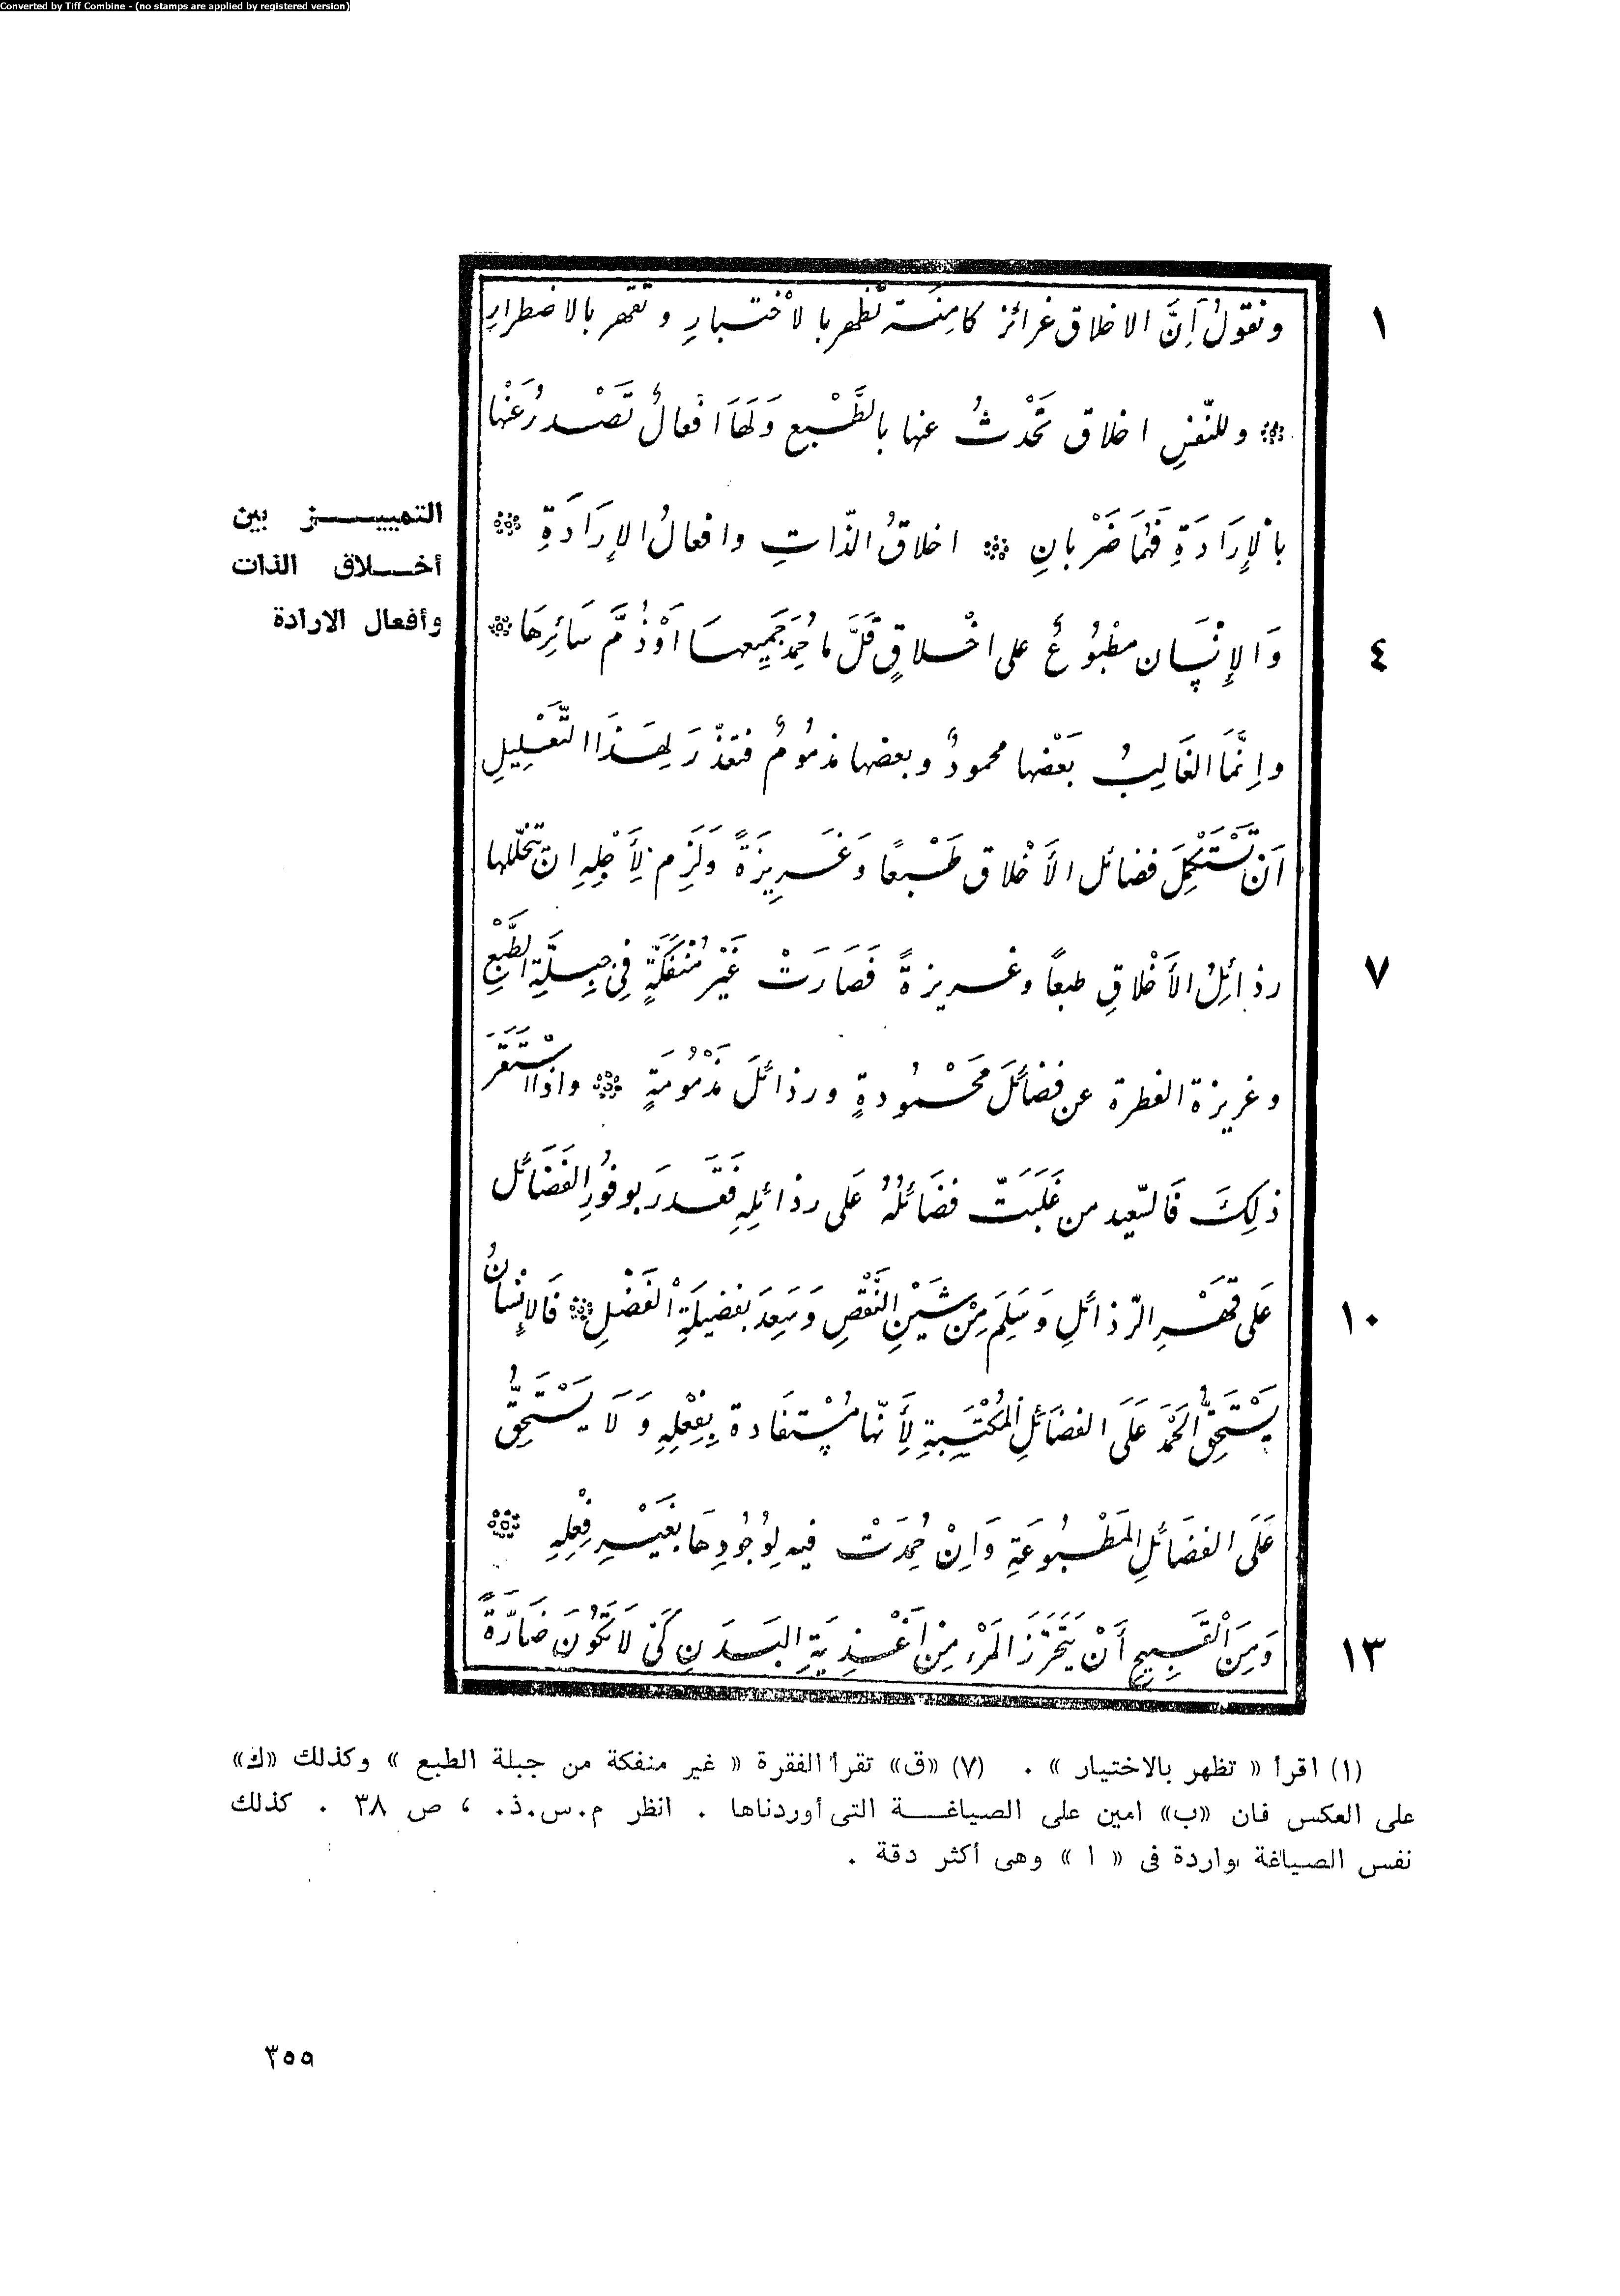 Converted by Tiff Combine - (no stamps are applied by registered version)
١
ونقولُ اَنَّ الاخلاق غرائز كامِنَة تظهر بالاْختبارِ وتقهر بالاضطرارِ
وللنّفسِ اخلاق تَحْدثُ عنها بالطَّبْع وَلَهَا افعالٌ تَصْدرُ عَنْها
التمييز بين
أخلاق الذات
وأفعال الارادة
بالإرَادَةِ فَهُمَا ضَرْبانِ اخلاقُ الذّاتِ وافعالُ الإرَادَةِ
٤
وَالإنْسَان مطبُوعٌ على اخْلاقٍ قَلَّ ما حُمِدَ جَمِيعهَا اَوْ ذُمَّ سَائِرهَا
وانَّمَا الغَالِبُ بَعْضُها محمودٌ وبعضها مذمُومٌ فتعَذّرَ لِهَذَا التَّعْلِيلِ
اَنْ تَسْتَكْمِلَ فضائل الأخْلاق طَبْعًا وَغَرِيزَةً وَلَزِمَ لِأَجْلِهِ ان تتخلّلها
٧
رذائِلُ الأَخْلاقِ طبعًا وغريزةً فَصَارَتْ غَيْر مُنْفَكَّةٍ فِي جِبِلَّةِ الطَّبْعِ
وغريزة الفطرة عن فضائلَ مَحْمُودةٍ ورذائلَ مَذْمُومَةٍ واذا اسْتَقَرَ
ذلِكَ فَالسّعيد من غَلَبَتْ فضَائلُهُ عَلى رذائلِهِ فَقَدرَ بوفُورِ الفَضَائل
١٠
عَلى قَهْرِ الرّذائلِ وَسَلِمَ مِنْ شَيْنِ النَّقْصِ وَسَعِدَ بفضيلَةِ الْفَضْلِ فَالإنْسانُ
يَسْتَحِقُّ الحَمْدَ عَلَى الفضَائلِ المُكْتَسَبَةِ لِأَنّها مُسْتفَادة بِفِعْلِهِ وَلَا يَسْتَحِقُّ
عَلَى الفضَائلِ المَطْبُوعَةِ وَاِنْ حُمِدَتْ فيه لِوُجُودِهَا بغَيْرِ فِعْلِهِ
١٣
وَمِنَ الْقَبِيحِ أَنْ يَتَحَرَّزَ المَرْء مِن اَغْذِيَةِ البَدَنِ كَيْ لَا تَكُونَ ضَارّةً
(١) اقرأ « تظهر بالاختيار » . (٧) «ق» تقرأ الفقرة « غير منفكة من جبلة الطبع » وكذلك «ك»
على العكس فان «ب» امين على الصياغة التى أوردناها . انظر م.س.ذ. ، ص ٣٨ . كذلك
نفس الصياغة واردة فى « ا » وهى أكثر دقة .
٣٥٥